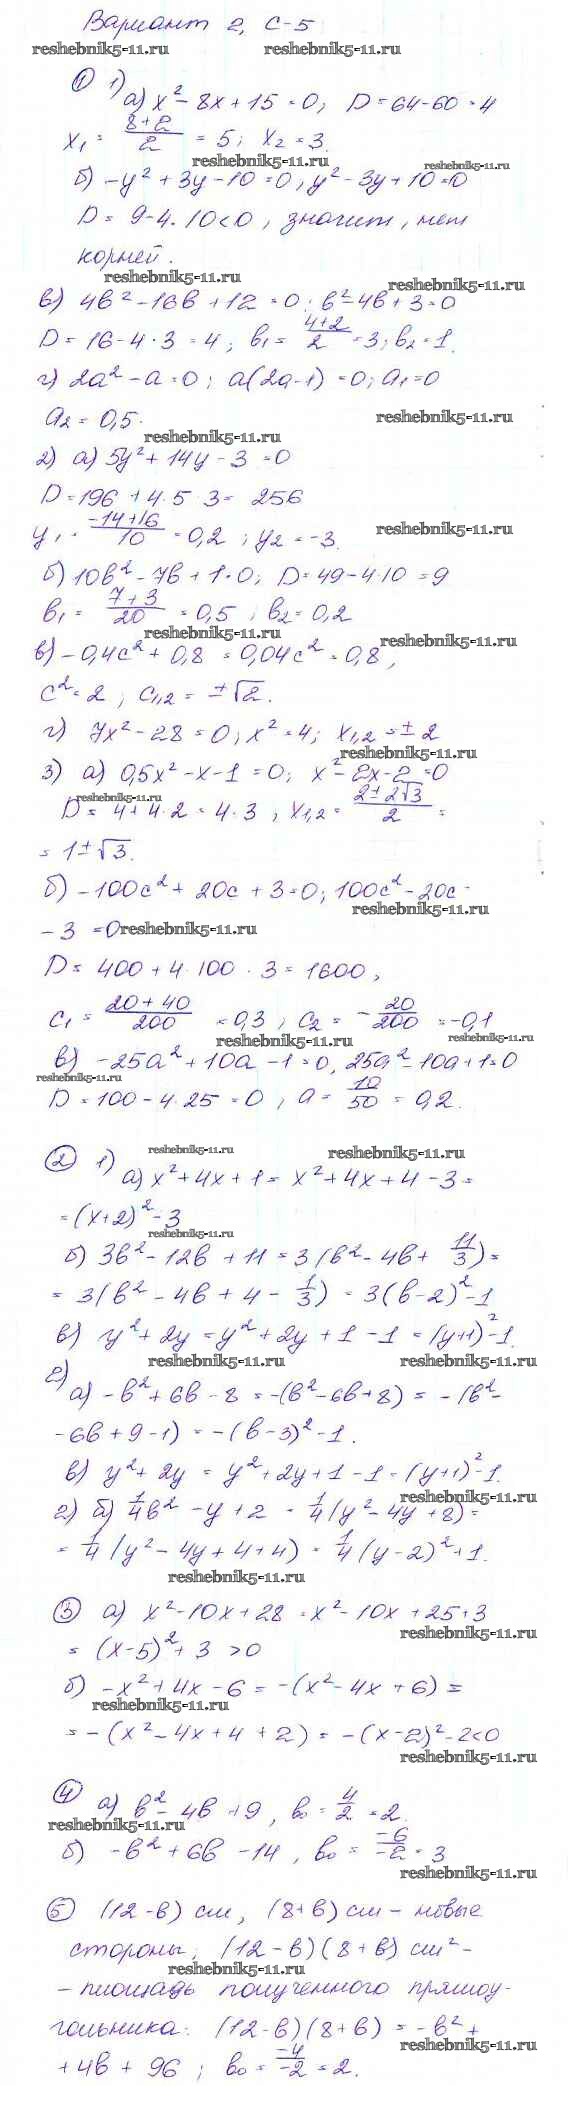 Вариант 2, С-5
reshebnik5-11.ru reshebnik5-11.ru
① 1) а) x² - 8x + 15 = 0; D = 64 - 60 = 4
x₁ = (8+2)/2 = 5; x₂ = 3.
reshebnik5-11.ru reshebnik5-11.ru
б) -y² + 3y - 10 = 0, y² - 3y + 10 = 0
D = 9 - 4·10 < 0, значит, нет
корней.
reshebnik5-11.ru reshebnik5-11.ru
в) 4b² - 16b + 12 = 0; b² - 4b + 3 = 0
D = 16 - 4·3 = 4; b₁ = (4+2)/2 = 3; b₂ = 1.
г) 2a² - a = 0; a(2a-1) = 0; a₁ = 0
a₂ = 0,5.
reshebnik5-11.ru reshebnik5-11.ru
2) а) 5y² + 14y - 3 = 0
D = 196 + 4·5·3 = 256
y₁ = (-14+16)/10 = 0,2; y₂ = -3.
reshebnik5-11.ru
б) 10b² - 7b + 1 = 0; D = 49 - 4·10 = 9
b₁ = (7+3)/20 = 0,5; b₂ = 0,2
reshebnik5-11.ru reshebnik5-11.ru
в) -0,4c² + 0,8 = 0,04c² = 0,8,
c² = 2; c₁,₂ = ±√2.
г) 7x² - 28 = 0; x² = 4; x₁,₂ = ±2
reshebnik5-11.ru
3) а) 0,5x² - x - 1 = 0; x² - 2x - 2 = 0
reshebnik5-11.ru
D = 4 + 4·2 = 4·3, x₁,₂ = (2±2√3)/2 =
= 1±√3.
б) -100c² + 20c + 3 = 0; 100c² - 20c -
reshebnik5-11.ru
- 3 = 0
reshebnik5-11.ru
D = 400 + 4·100·3 = 1600,
c₁ = (20+40)/200 = 0,3; c₂ = -20/200 = -0,1
reshebnik5-11.ru reshebnik5-11.ru
в) -25a² + 10a - 1 = 0, 25a² - 10a + 1 = 0
reshebnik5-11.ru
D = 100 - 4·25 = 0; a = 10/50 = 0,2.
reshebnik5-11.ru reshebnik5-11.ru
② 1) а) x² + 4x + 1 = x² + 4x + 4 - 3 =
= (x+2)² - 3
reshebnik5-11.ru
б) 3b² - 12b + 11 = 3(b² - 4b + 11/3) =
= 3(b² - 4b + 4 - 1/3) = 3(b-2)² - 1
в) y² + 2y = y² + 2y + 1 - 1 = (y+1)² - 1.
reshebnik5-11.ru reshebnik5-11.ru
2) а) -b² + 6b - 8 = -(b² - 6b + 8) = -(b² -
- 6b + 9 - 1) = -(b-3)² - 1.
в) y² + 2y = y² + 2y + 1 - 1 = (y+1)² - 1.
reshebnik5-11.ru
2) б) 1/4b² - y + 2 = 1/4(y² - 4y + 8) =
= 1/4(y² - 4y + 4 + 4) = 1/4(y-2)² + 1.
reshebnik5-11.ru
③ а) x² - 10x + 28 = x² - 10x + 25 + 3
reshebnik5-11.ru
= (x-5)² + 3 > 0
б) -x² + 4x - 6 = -(x² - 4x + 6) =
reshebnik5-11.ru
= -(x² - 4x + 4 + 2) = -(x-2)² - 2 < 0
reshebnik5-11.ru
④ а) b² - 4b + 9, b₀ = 4/2 = 2.
reshebnik5-11.ru
б) -b² + 6b - 14, b₀ = -6/-2 = 3
reshebnik5-11.ru
⑤ (12-b) см, (8+b) см - новые
стороны, (12-b)(8+b) см² -
reshebnik5-11.ru
- площадь полученного прямоу-
гольника: (12-b)(8+b) = -b² +
reshebnik5-11.ru
+ 4b + 96; b₀ = -4/-2 = 2.